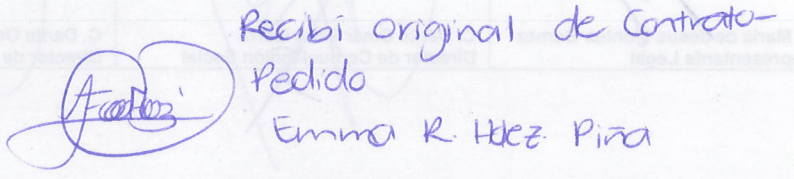 Recibi original de Contrato-
Pedido
Emma R. Hdez. Piña